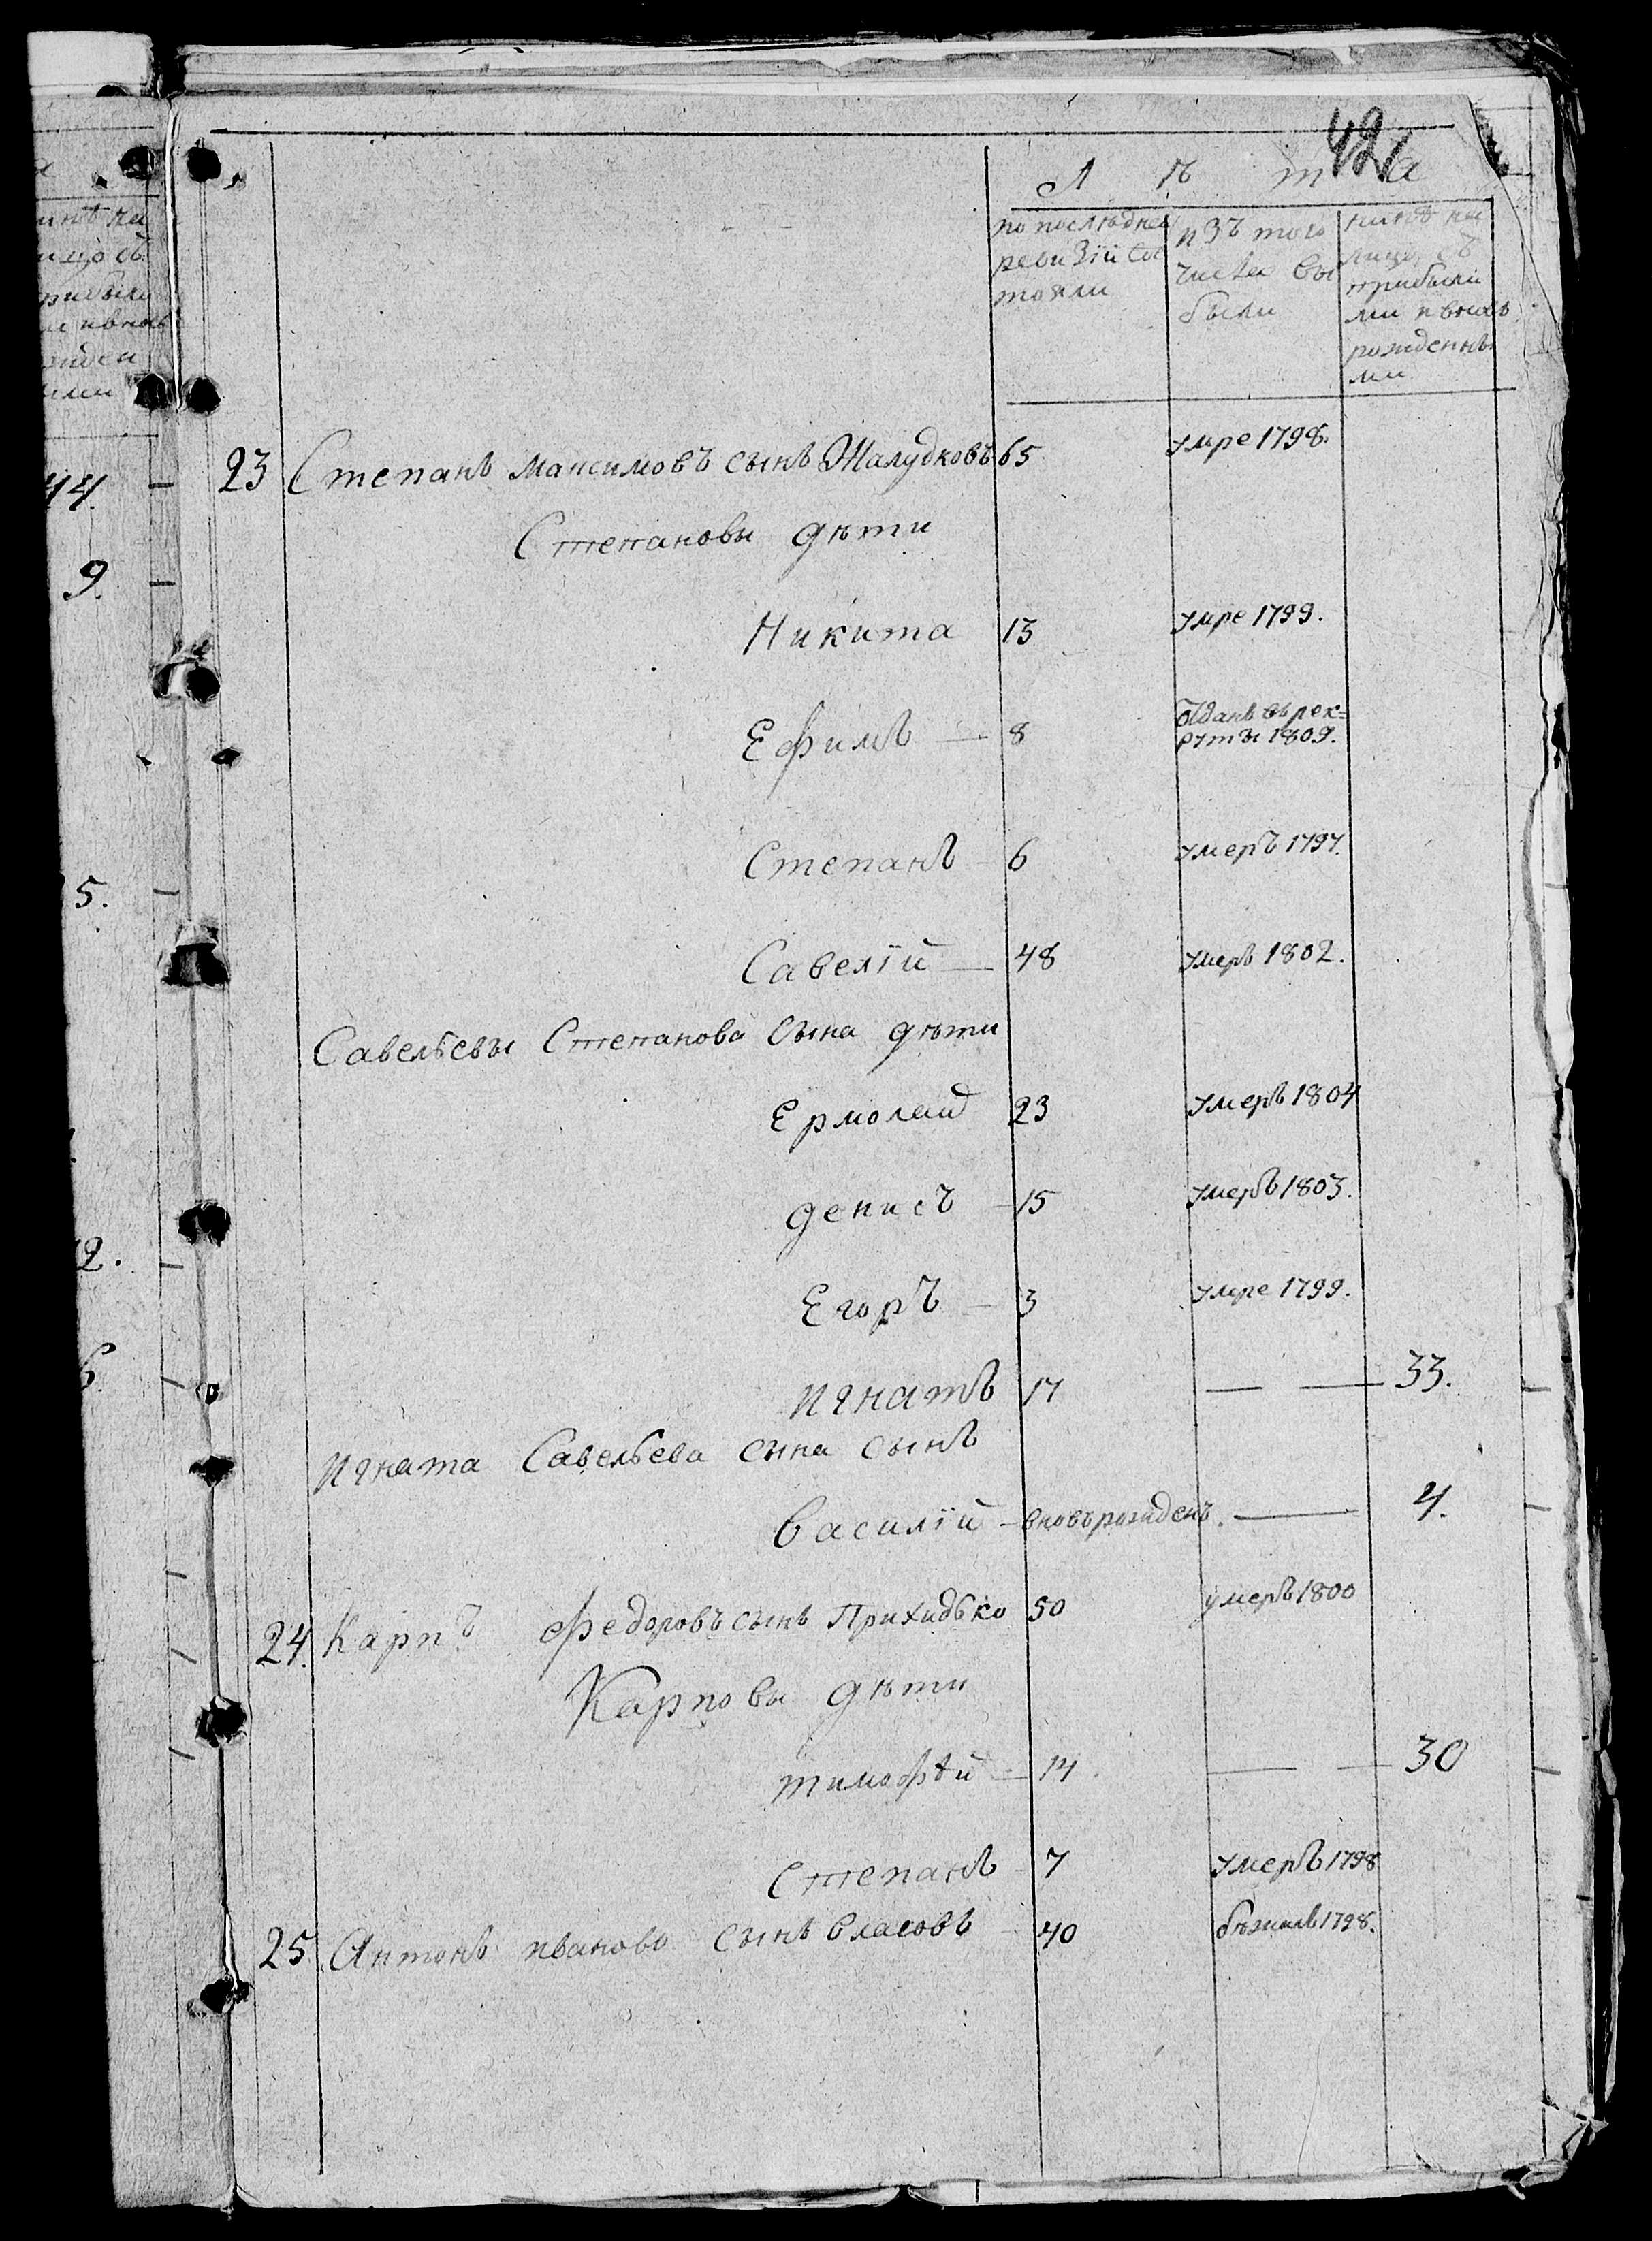 42
Л ѣ т а
инѣ на
ицо съ
рибыли
и вновь
жден
ыми
по последнеи ревизіи со стояли
изъ того числа вы были
нынѣ на лицо съ прибыли ми и вновь рожденны ми
44.
9.
5.
2.
6.
23 Степанъ Максимовъ сынъ Жалудковъ 65 умре 1798.
Степановы дѣти
Никита 13 умре 1799.
Ефимъ — 8 отданъ въ рек=
руты 1809.
Степанъ — 6 умеръ 1797.
Савелій — 48 умеръ 1802.
Савельевы Степанова сына дѣти
Ермолай 23 умеръ 1804
Денисъ — 15 умеръ 1803.
Егоръ — 3 умре 1799.
Игнатъ 17 — — 33.
Игната Савельева сына сынъ
Василій — вновь рожденъ. — 4.
24. Карпъ Федоровъ сынъ Приходько 50 умеръ 1800
Карповы дѣти
Тимофѣй — 14 — — 30
Степанъ — 7 умеръ 1798
25 Антонъ Ивановъ сынъ Власовъ — 40 бѣжалъ 1798.